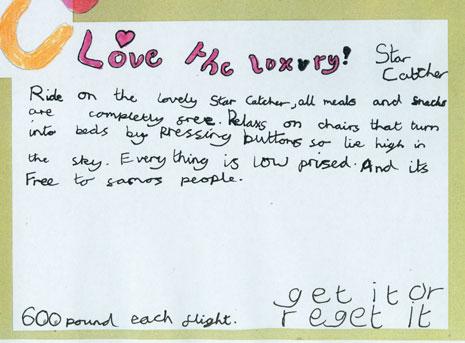 Love the luxury!
Star
Catcher
Ride on the lovely Star Catcher, all meals and snacks
are completly free. Relaxs on chairs that turn
into beds by Pressing buttons so lie high in
the sky. Every thing is low prised. And its
Free to samos people.
600 pound each flight.
get it or
reget it